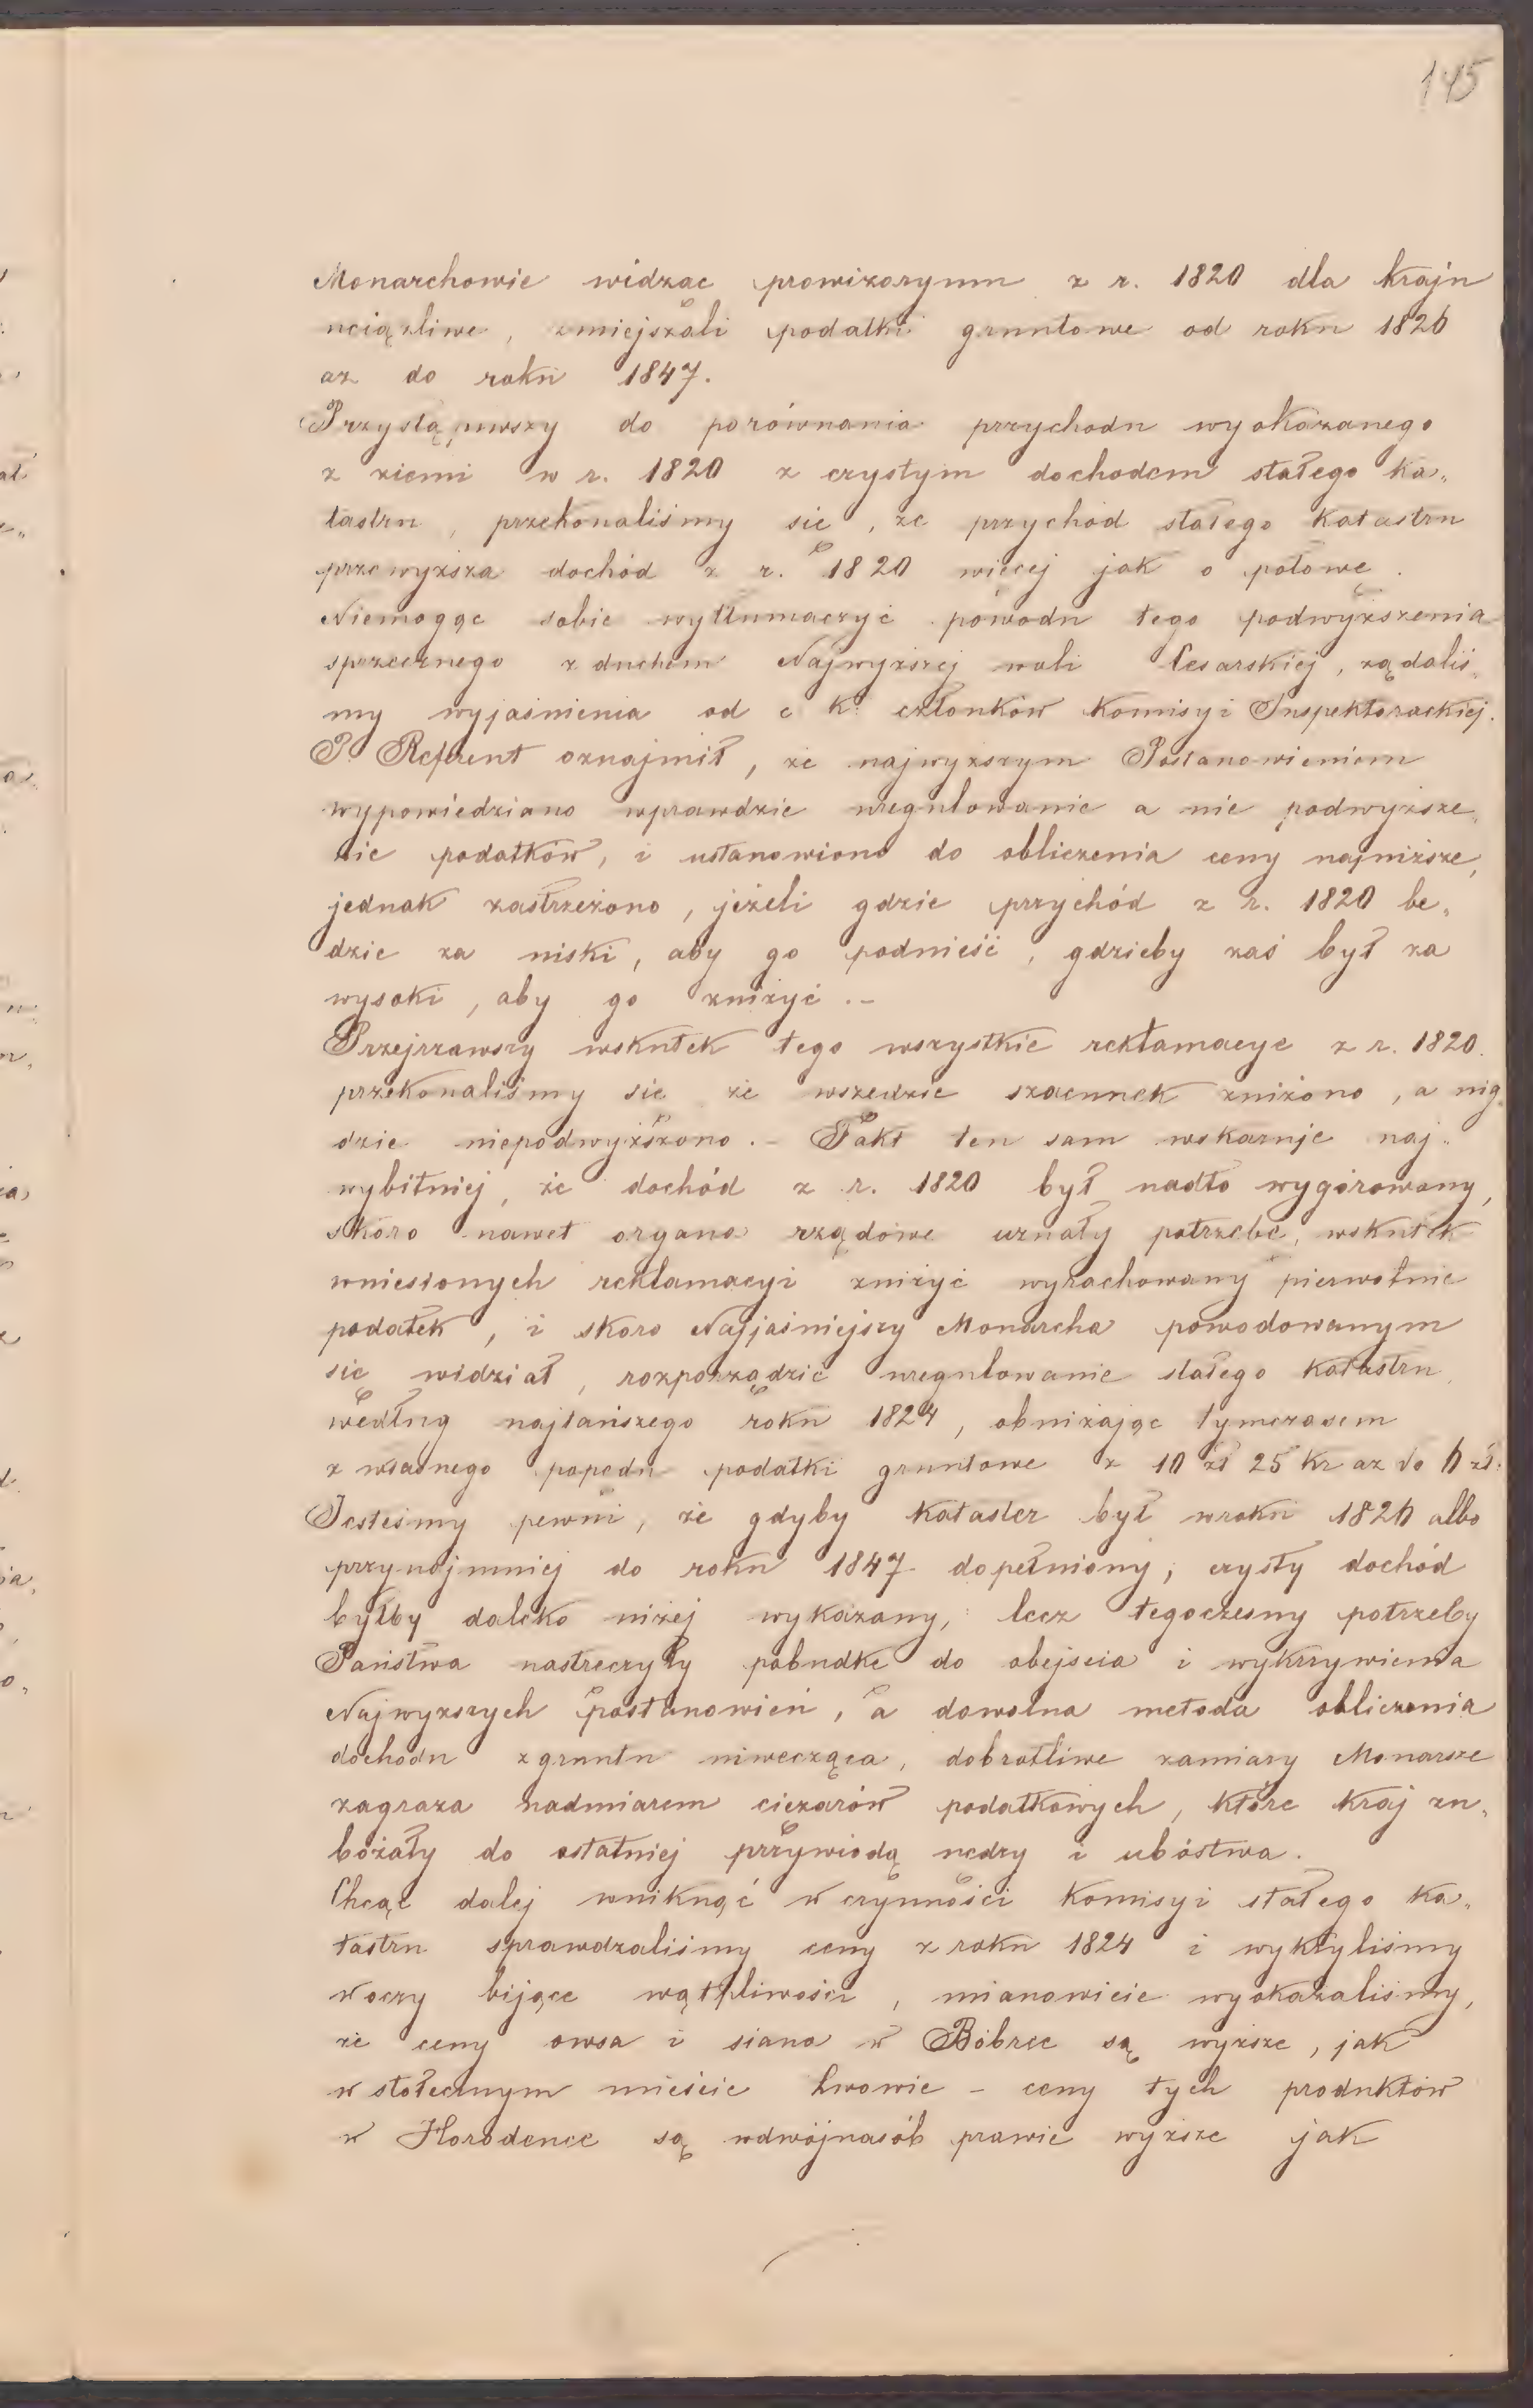 145
Monarchowie widząc prowizoryum z r. 1820 dla kraju
uciążliwe, zmiejszali podatki gruntowe od roku 1826
aż do roku 1847.
Przystąpiwszy do porównania przychodu wyokazanego
z ziemi w r. 1820 z czystym dochodem stałego ka„
tastru, przekonaliśmy się, że przychód stałego katastru
przewyższa dochód z r. 1820 więcej jak o połowę.
Niemogąc sobie wytłumaczyć powodu tego podwyższenia
sprzecznego z duchem Najwyższej woli Cesarskiej, żądaliś„
my wyjaśnienia od c k. członków Komisyi Inspektorackiej.
P. Referent oznajmił, że najwyższym Postanowieniem
wypowiedziano wprawdzie uregulowanie a nie podwyższe„
nie podatków, i ustanowiono do obliczenia ceny najniższe,
jednak zastrzeżono, jeżeli gdzie przychód z r. 1820 bę„
dzie za niski, aby go podnieść, gdzieby zaś był za
wysoki, aby go zniżyć.–
Przejrzawszy wskutek tego wszystkie reklamacye z r. 1820.
przekonaliśmy się że wszędzie szacunek zniżono, a nig„
dzie niepodwyższono.– Fakt ten sam wskazuje naj„
wybitniej, że dochód z r. 1820 był nadto wygórowany,
skoro nawet organa rządowe uznały potrzebę, wskutek
wniesionych reklamacyi zniżyć wyrachowany pierwotnie
podatek, i skoro Najjaśniejszy Monarcha powodowanym
się widział, rozporządzić uregulowanie stałego katastru,
według najtańszego roku 1824, obniżając tymczasem
z własnego popędu podatki gruntowe z 10 zł 25 kr aż do 6 zł.
Jesteśmy pewni, że gdyby kataster był wroku 1826 albo
przynajmniej do roku 1847 dopełniony; czysty dochód
byłby daleko niżej wykazany, lecz tegoczesny potrzeby
Państwa nastręczyły pobudkę do obejścia i wykrzywienia
Najwyższych postanowień, a dowolna metoda obliczenia
dochodu zgruntu niwecząca, dobrotliwe zamiary Monarsze
zagraża nadmiarem ciężarów podatkowych, które kraj zu„
bożały do ostatniej przywiodą nędzy i ubóstwa.
Chcąc dalej wniknąć w czynności Komisyi stałego ka„
tastru sprawdzaliśmy ceny z roku 1824 i wykryliśmy
w oczy bijące wątpliwości, mianowicie wyokazaliśmy,
że ceny owsa i siana w Bóbrce są wyższe, jak
w stołecznym mieście Lwowie – ceny tych produktów
w Horodence są wdwójnasób prawie wyższe jak